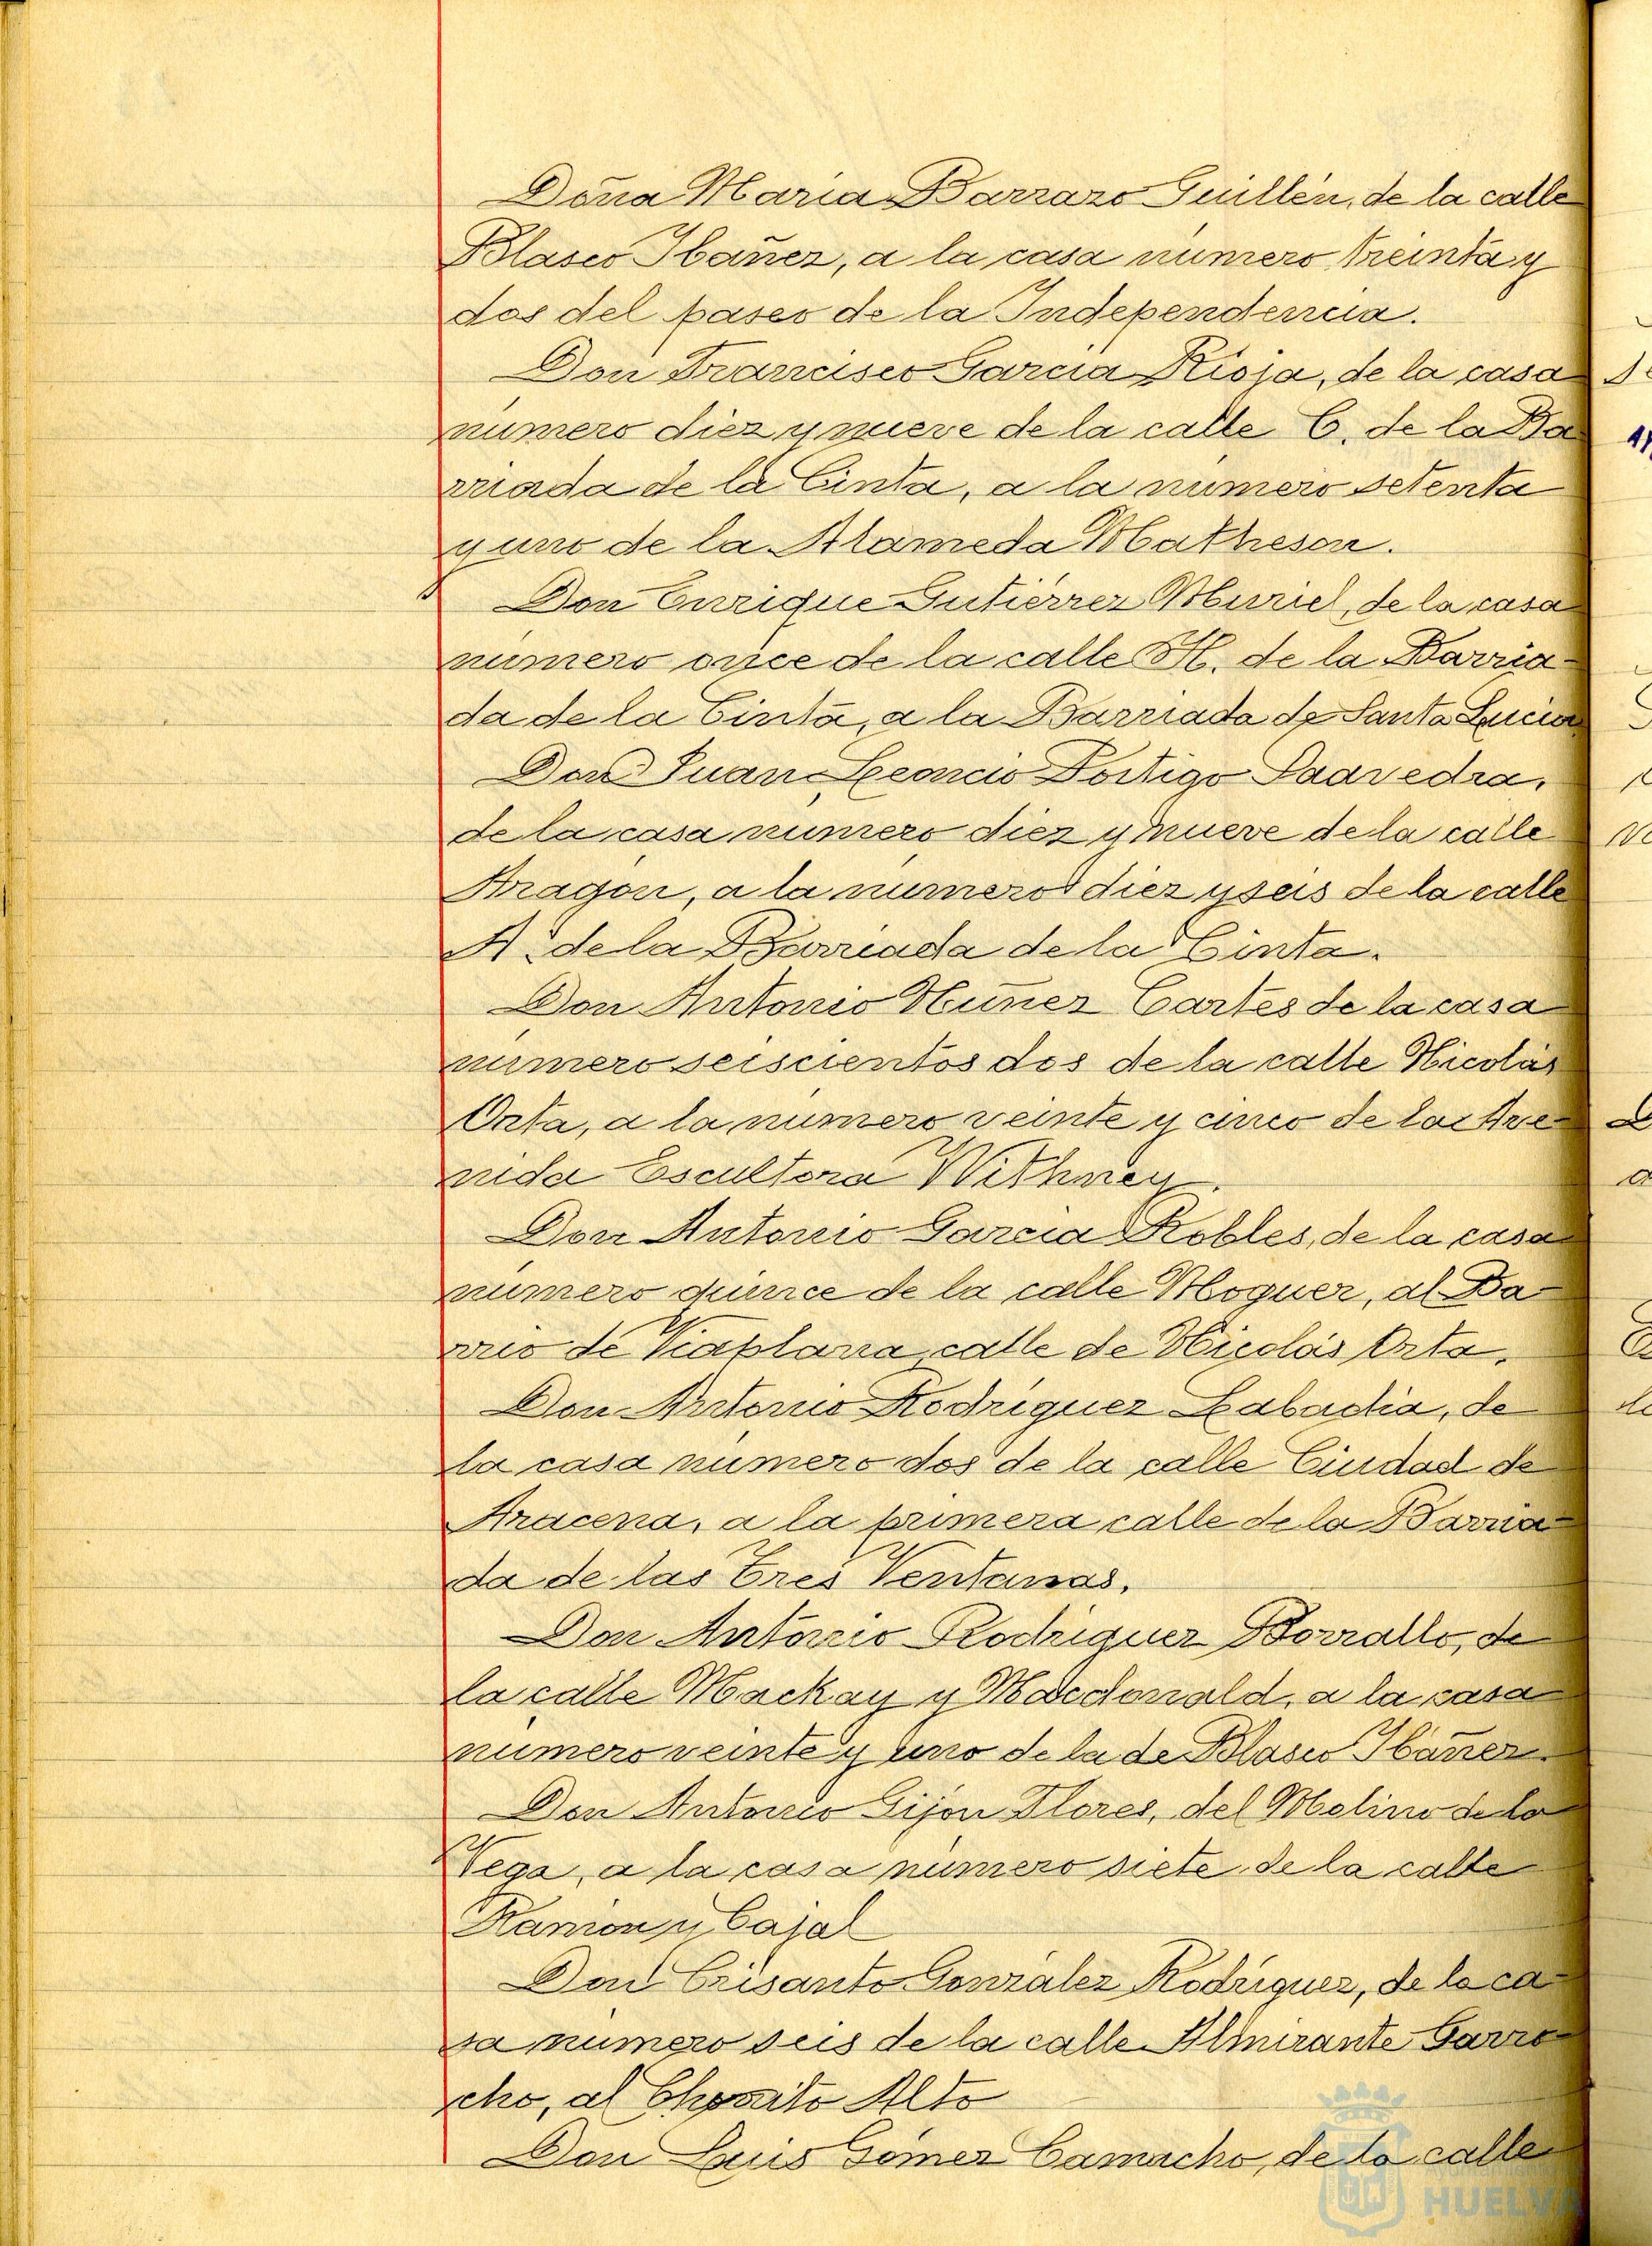 Doña María Barrazo Guillén, de la calle
Blasco Ibañez, a la casa número treinta y
dos del paseo de la Independencia.
Don Francisco García Rioja, de la casa
número diez y nueve de la calle C. de la Ba
rriada de la Cinta, a la número setenta
y uno de la Alameda Matheson.
Don Enrique Gutiérrez Muriel, de la casa
número once de la calle H. de la Barria-
da de la Cinta, a la Barriada de Santa Lucia.
Don Juan Leoncio Postigo Saavedra,
de la casa número diez y nueve de la calle
Aragón, a la número diez y seis de la calle
A. de la Barriada de la Cinta.
Don Antonio Nuñez Cartes de la casa
número seiscientos dos de la calle Nicolás
Orta, a la número veinte y cinco de la Ave-
nida Escultora Withney.
Don Antonio García Robles, de la casa
número quince de la calle Moguer, al Ba-
rrio de Viaplana, calle de Nicolás Orta.
Don Antonio Rodríguez Labadía, de
la casa número dos de la calle Ciudad de
Aracena, a la primera calle de la Barria-
da de las Tres Ventanas.
Don Antonio Rodríguez Borrallo, de
la calle Mackay y Macdonald, a la casa
número veinte y uno de la de Blasco Ibáñez.
Don Antonio Gijón Flores, del Molino de la
Vega, a la casa número siete de la calle
Ramón y Cajal
Don Crisanto González Rodríguez, de la ca-
sa número seis de la calle Almirante Garro-
cho, al Chorrito Alto
Don Luis Gómez Camacho, de la calle
Ayuntamiento de
HUELVA